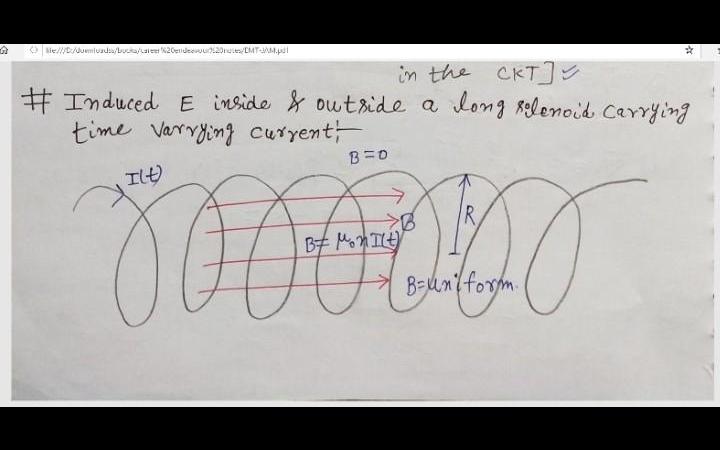 file:///D:/downloadss/books/career%20endeavour%20notes/EMT-JAM.pdf
in the CKT]
# Induced E inside & outside a long solenoid carrying
time varrying current:-
B=0
I(t)
R
B
B= μ₀nI(t)
B=uniform.